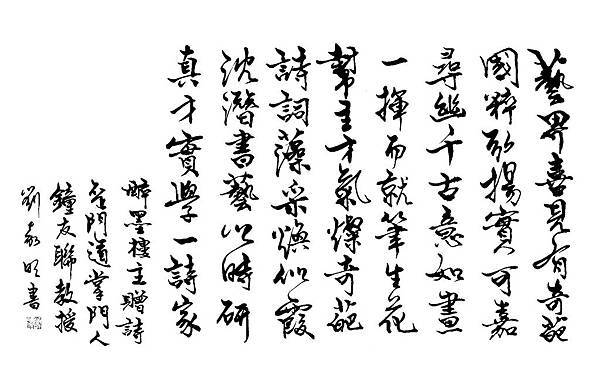 藝界喜見有奇葩
國粹弘揚實可嘉
尋幽千古意如畫
一揮而就筆生花
幫主才氣燦奇葩
詩詞藻采煥似霞
沈潛書藝以時研
真才實學一詩家
醉墨樓主贈詩
空門道掌門人
鐘友聯教授
劉明書